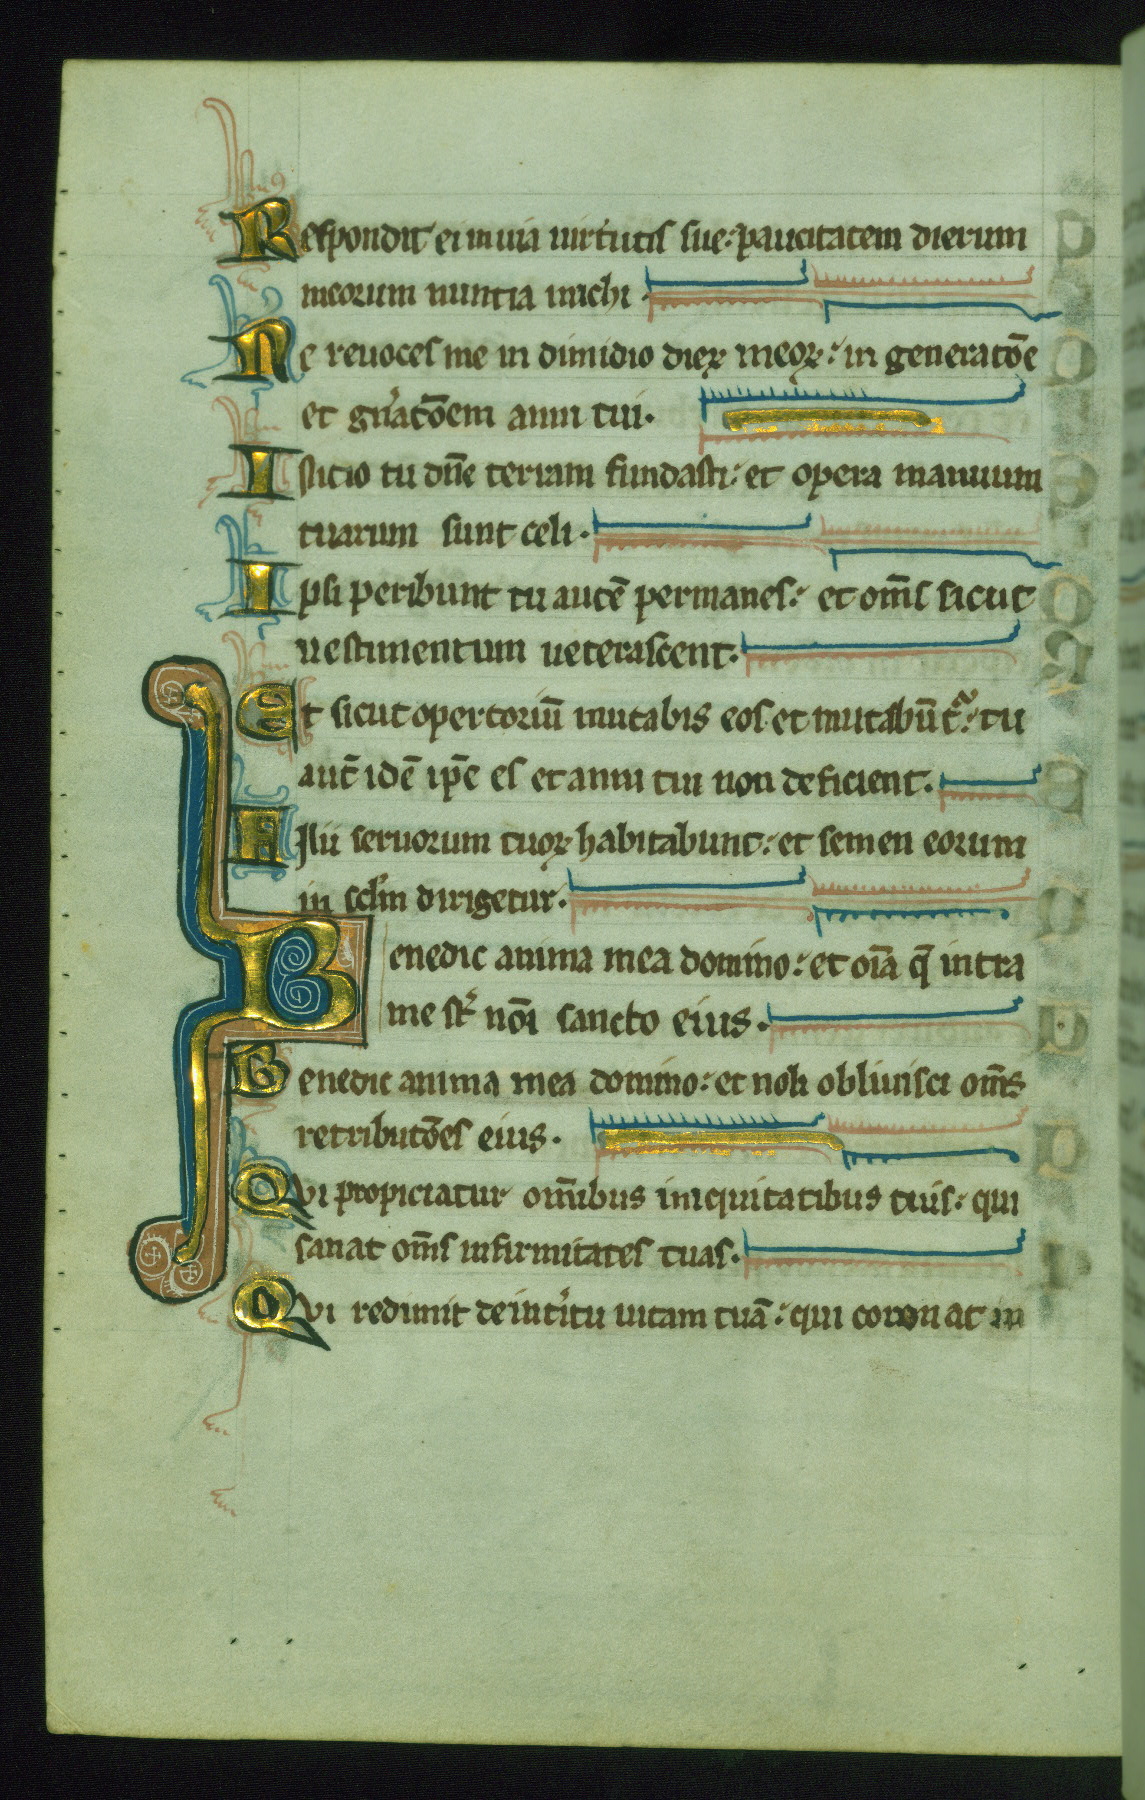 Respondit ei in uia uirtutis sue: paucitatem dierum
meorum nuntia michi.
Ne reuoces me in dimidio dieꝝ meoꝝ: in generatōe
et gn̄atōem anni tui.
Inicio tu dn̄e terram fundasti: et opera manuum
tuarum sunt celi.
Ipsi peribunt tu autē permanes: et om̄s sicut
uestimentum ueterascent.
Et sicut opertoriū mutabis eos et mutabūt᷑: tu
aut̄ idē ip̄e es et anni tui non deficient.
Filii seruorum tuoꝝ habitabunt: et semen eorum
in sclm̄ dirigetur.
Benedic anima mea domino: et oīa q̄ intra
me st̄ nōi sancto eius.
Benedic anima mea domino: et noli obliuisci om̄s
retributōes eius.
Qvi propiciatur om̄ibus iniquitatibus tuis: qui
sanat om̄s infirmitates tuas.
Qvi redimit de int̓itu uitam tuā: qui coronat in